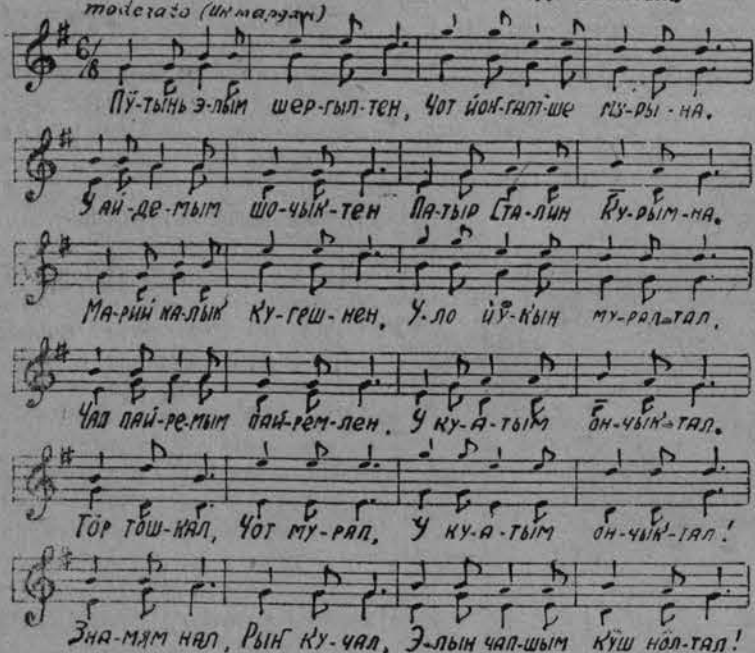 moderato (Икмардан)
6/8
Пӱ-тынь э-лым шер-гыл-тен, Чот йоҥ-галт-ше му-ры-на.
У ай-де-мым шо-чык-тен Па-тыр Ста-лин Ку-рым-на.
Ма-рий ка-лык ку-геш-нен, У-ло йӱ-кын му-рал-тал.
Чап пай-ре-мым пай-рем-лен. У ку-а-тым он-чык-тал.
Тӧр тош-кал, Чот му-рал, У ку-а-тым он-чык-тал!
Зна-мям нал, Рыҥ ку-чал, Э-лын чап-шым кӱш нӧл-тал!